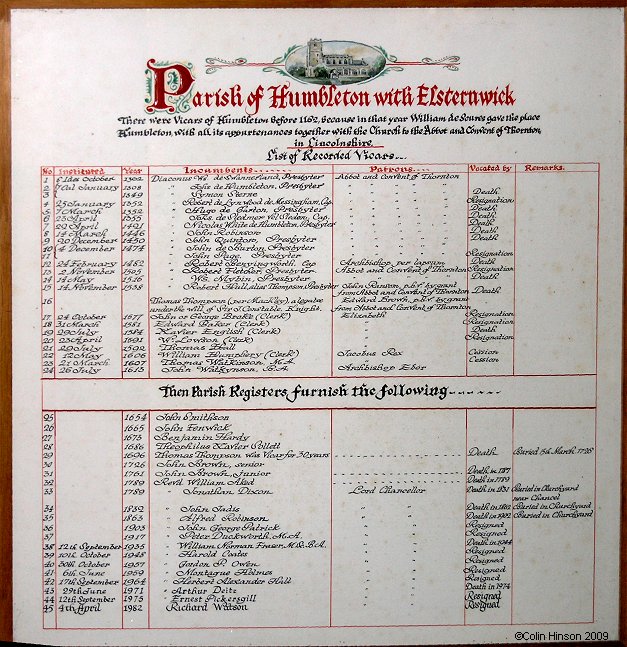 Parish of Humbleton with Elsternwick
There were Vicars of Humbleton before 1162, because in that year William de Scures gave the place
Humbleton, with all its appurtenances together with the Church to the Abbot and Convent of Thornton,
in Lincolnshire.
List of Recorded Vicars
No Instituted Year Incumbents Patrons Vacated by Remarks.
1 October 1302 Diaconus de Swannerland, Presbyter Abbot and Convent of Thornton
2 January 1308 " de Humbleton, Presbyter "
3 1349 " Symon Sterne " Death
4 25 January 1352 " Robert de Lynwood de Messingham, Cap. " Resignation
5 7 March 1352 " Hugo de Garton, Presbyter " Death
6 23 April 1355 " de Sledmer vel Sleden, Cap. " Death
7 29 April 1421 " Nicolas White de Humbleton, Presbyter " Death
8 14 March 1446 " John Robinson " Death
9 20 December 1450 " John Quinton, Presbyter " Death
10 4 December 1474 " John Coburton, Presbyter "
11 " John Page, Presbyter " Resignation
12 24 February 1482 " Robert Benyngworth, Cap Archbishop, per lapsum Death
13 2 November 1505 " Robert Fletcher, Presbyter Abbot and Convent of Thornton Resignation
14 14 May 1516 " Myrbin, Presbyter " Death
15 14 November 1538 " Robert Hull, alias Thompson, Presbyter John Ranson, p.h.v. by grant Death
from Abbot and Convent of Thornton
16 Thomas Thompson (per Mackley), a legate Edward Brown, p.h.v. by grant
under the will of Sir J. Constable, Knight. from Abbot and Convent of Thornton
17 24 October 1577 John or George Broke (Clerk) Elizabeth Resignation
18 31 March 1581 Edward Baker (Clerk) " Resignation
19 29 July 1584 Xavier English (Clerk) " Death
20 23 April 1591 W. Lowson (Clerk) " Resignation
21 29 July 1592 Thomas Hall "
22 12 May 1606 William Humphery (Clerk) Jacobus Rex Cession
23 21 March 1607 Thomas Watkinson, M.A. " Cession
24 26 July 1613 John Watkynson, B.A. Archbishop Ebor
Then Parish Registers furnish the following
25 1654 John Smithson
26 1665 John Fenwick
27 1673 Benjamin Hardy
28 1686 Theophilus Xavier Collett
29 1696 Thomas Thompson was Vicar for 30 years Death Buried 15th March 1725
30 1726 John Brown, senior
31 1761 John Brown, Junior Death in
32 1789 Revd. William Aked Death in 1789
33 1789 " Jonathan Dixon Lord Chancellor Death in 1831 Buried in Churchyard
near Chancel
34 1832 " John Jadis " Death in Buried in Churchyard
35 1863 " Alfred Robinson " Death in 1902 Buried in Churchyard
36 1903 " John George Patrick " Resigned
37 1917 " Peter Duckworth, M.A. " Resigned
38 12th September 1935 " William Norman Fraser, M.B., B.A. " Death in 1944
39 10th October 1948 " Harold Coates " Resigned
40 30th October 1957 " Gordon P. Owen " Resigned
41 6th June 1959 " Montague Holmes " Resigned
42 17th September 1964 " Herbert Alexander Hull " Resigned
43 29th June 1971 " Arthur Deitz " Death in 1974
44 12th September 1975 " Ernest Pickersgill " Resigned
45 4th April 1982 Richard Watson " Resigned
©Colin Hinson 2009